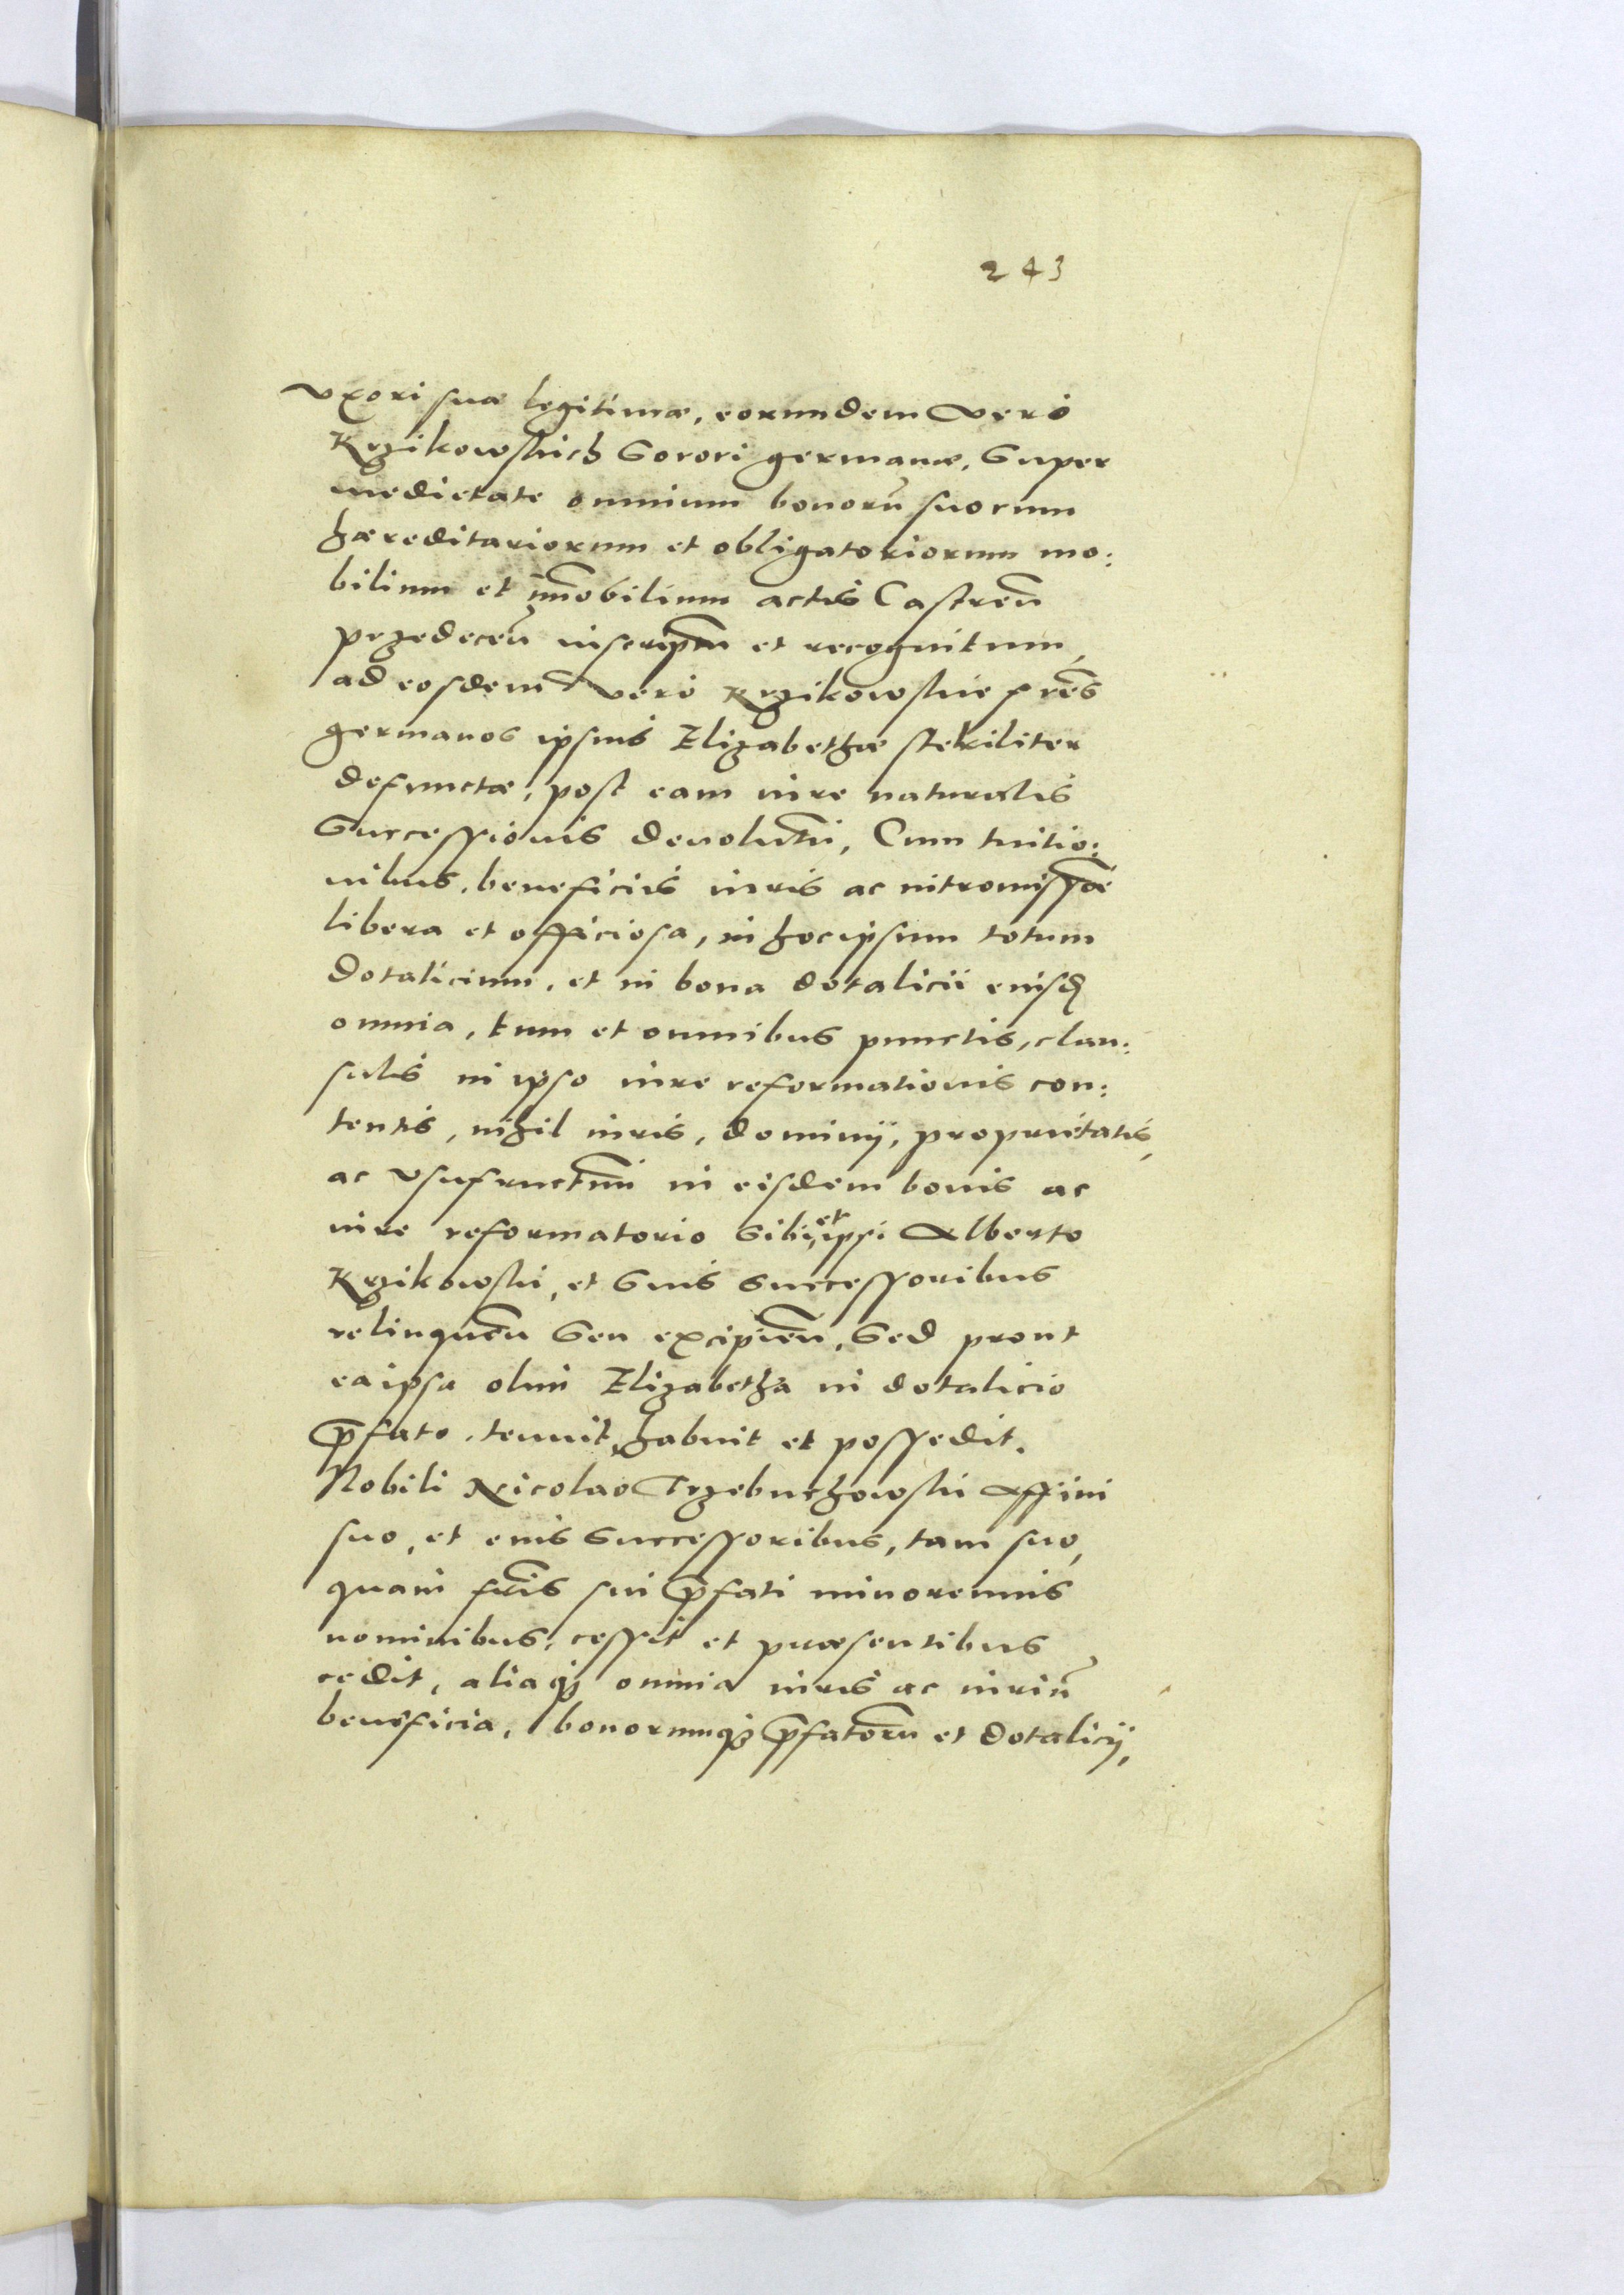 243
vxori suæ legitimæ, eorumdem vero
Krzikowskich Sorori germanæ, Super
medietate omnium bonorũ suorum
hæreditariorum et obligatoriorum mo:
bilium et im̃obilium actis Castreñ
przedeceñ inscriptm̃ et recognitum,
ad eosdem vero Krzikowskie fr̃es
germanos ipsius Elizabethæ steriliter
defunctæ, post eam iure naturalis
Successionis deuolutm̃, Cum tuitio:
nibus, beneficiis iuris ac intromissioẽ
libera et officiosa, in hoc ipsum totum
dotalicium, et in bona dotalicii eiusđ
omnia, tum et omnibus punctis, clau:
sulis in ipso iure reformationis con:
tentis, nihil iuris, dominij, proprietatis,
ac vsufructum̃ in eisdem bonis ac
iure reformatorio Sibi, et ipsi Alberto
Krzikowski, et Suis Successoribus
relinqueñ Seu excipieñ, Sed prout
ea ipsa olim Elizabetha in dotalicio
p̃fato, tenuit, habuit et possedit.
Nobili Nicolao Trzebuchowski Affini
suo, et eius Successoribus, tam suo,
quam fr̃is sui p̃fati minorennis
nominibus, cessit et præsentibus
cedit, aliaq3 omnia iuris ac iuriũ
beneficia, bonorumq3 p̃fatorũ et dotalicij,